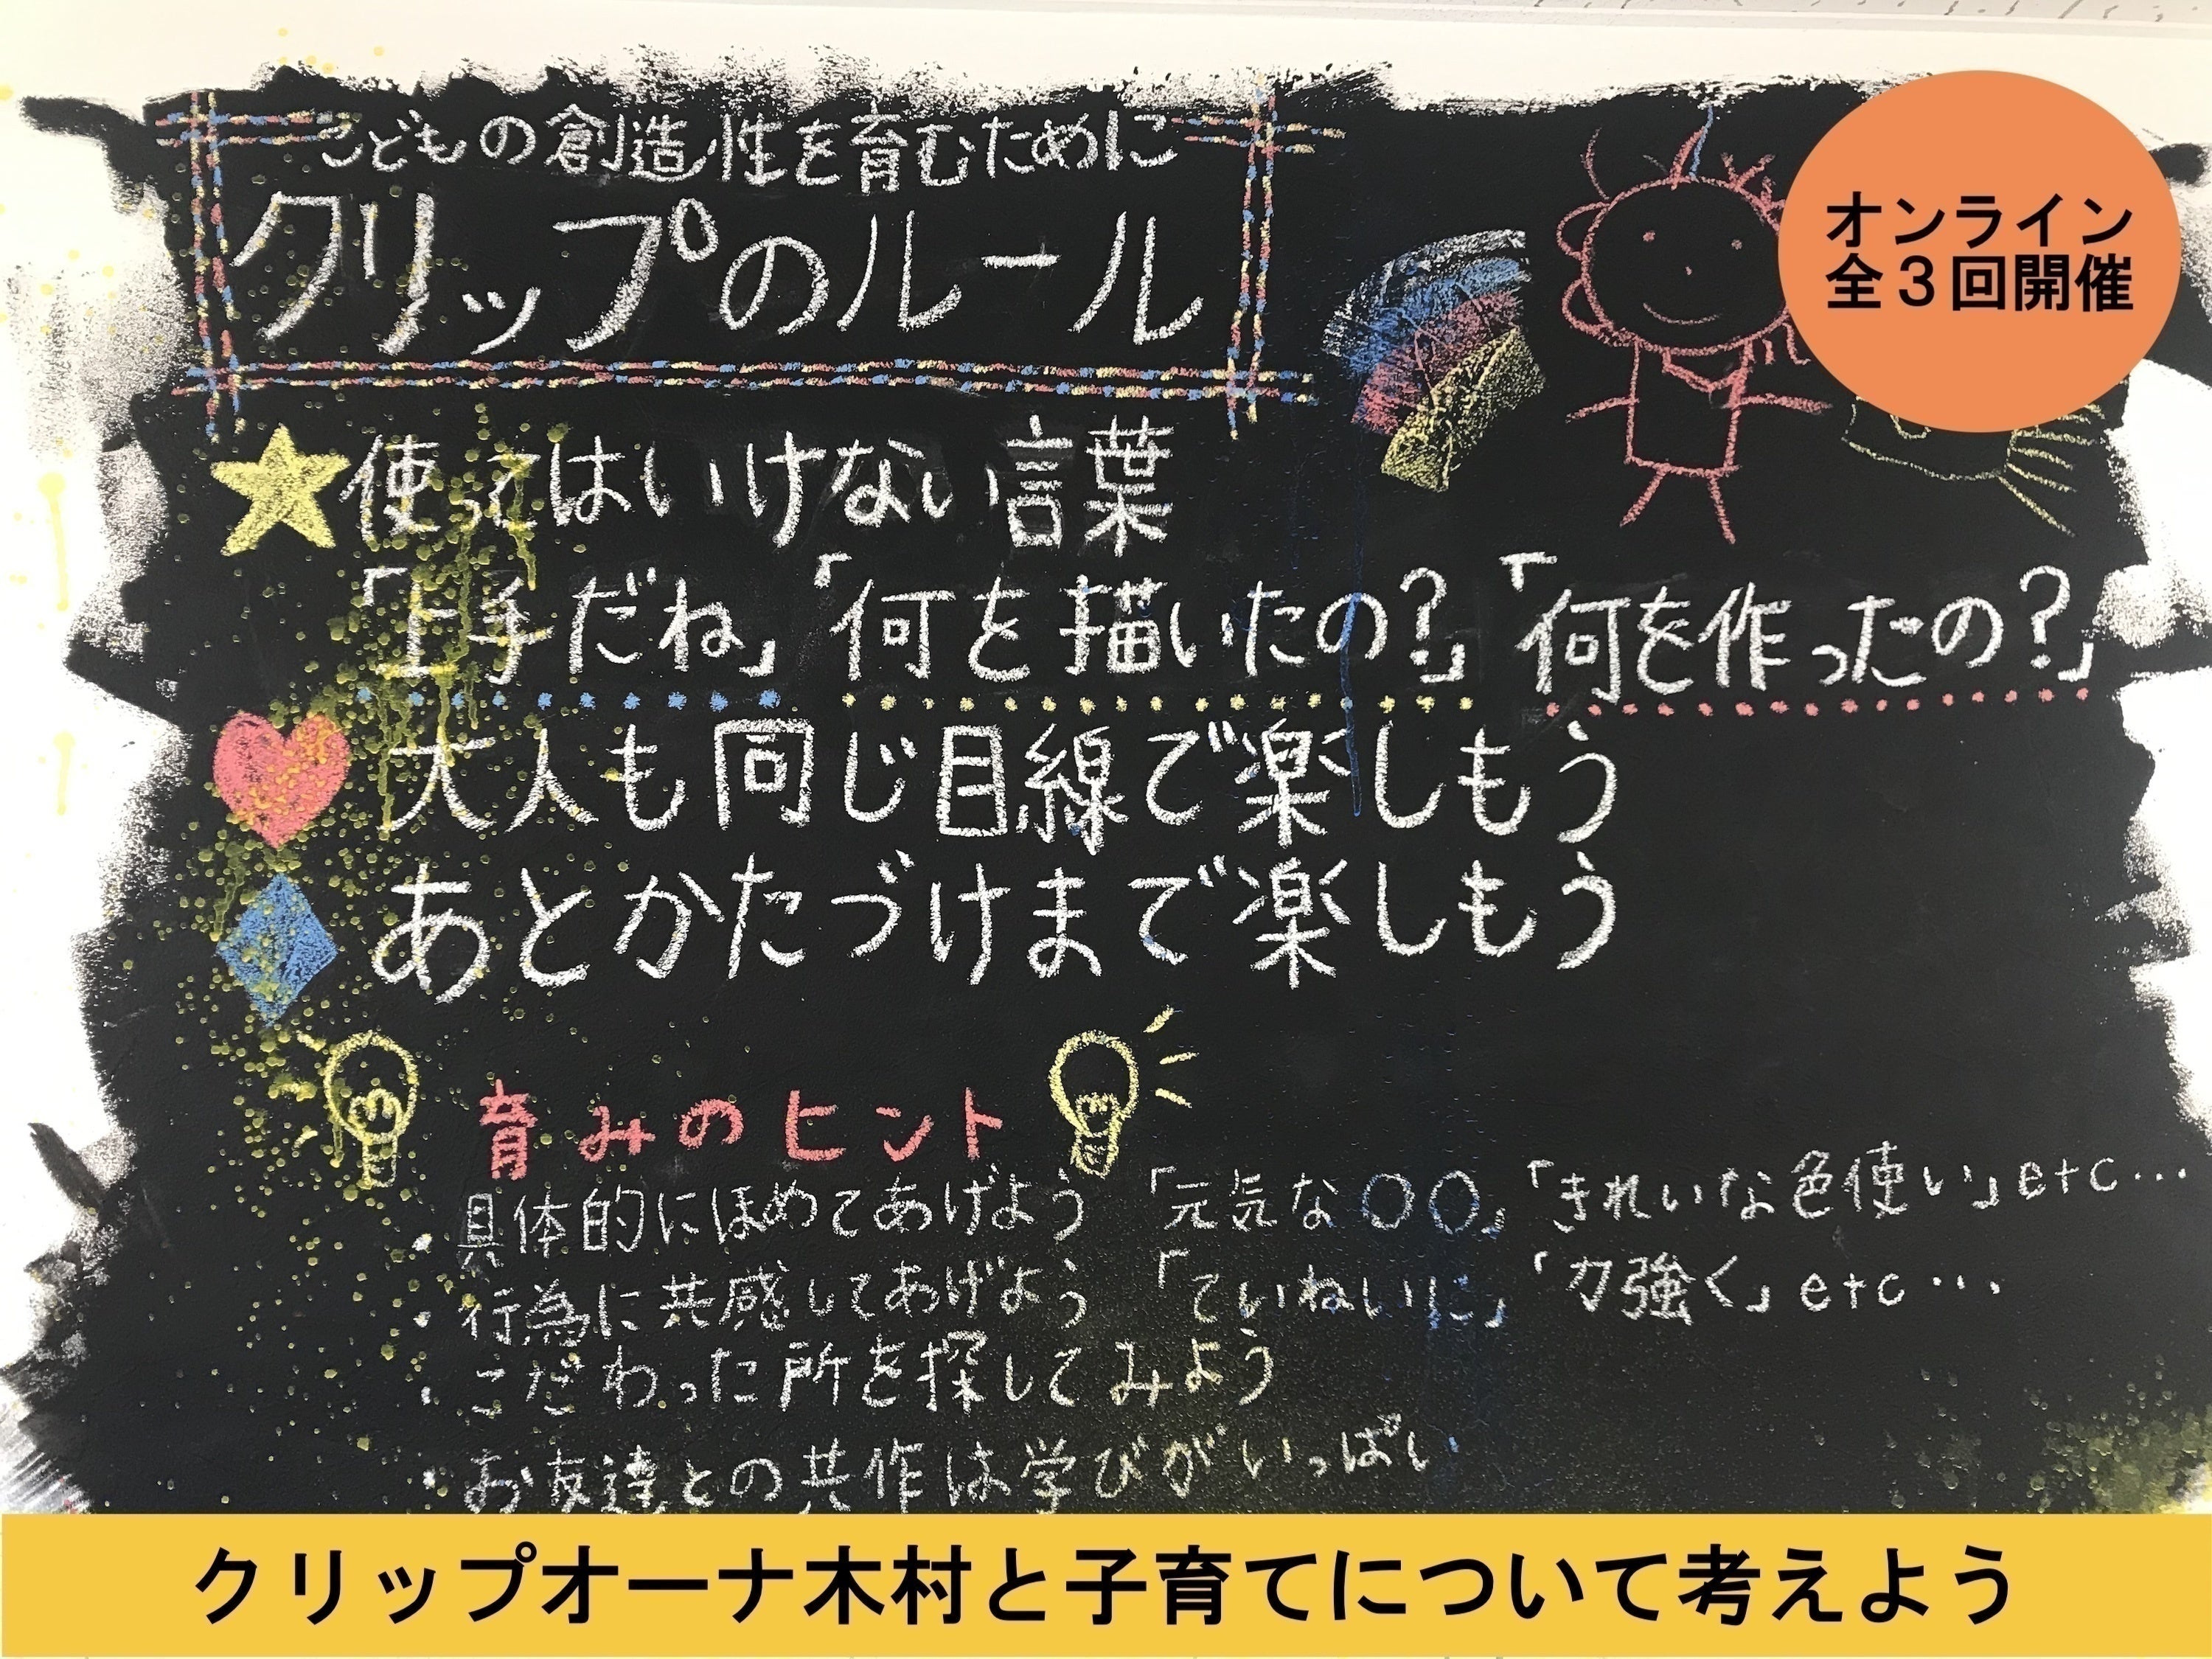 こどもの創造性を育むために
クリップのルール
オンライン
全3回開催
使ってはいけない言葉
「上手だね」「何を描いたの？」「何を作ったの？」
大人も同じ目線で楽しもう
あとかたづけまで楽しもう
育みのヒント
・具体的にほめてあげよう 「元気な〇〇」「きれいな色使い」etc…
・行為に共感してあげよう 「ていねいに」「力強く」etc…
・こだわった所を探してみよう
・お友達との共作は学びがいっぱい
クリップオーナ木村と子育てについて考えよう